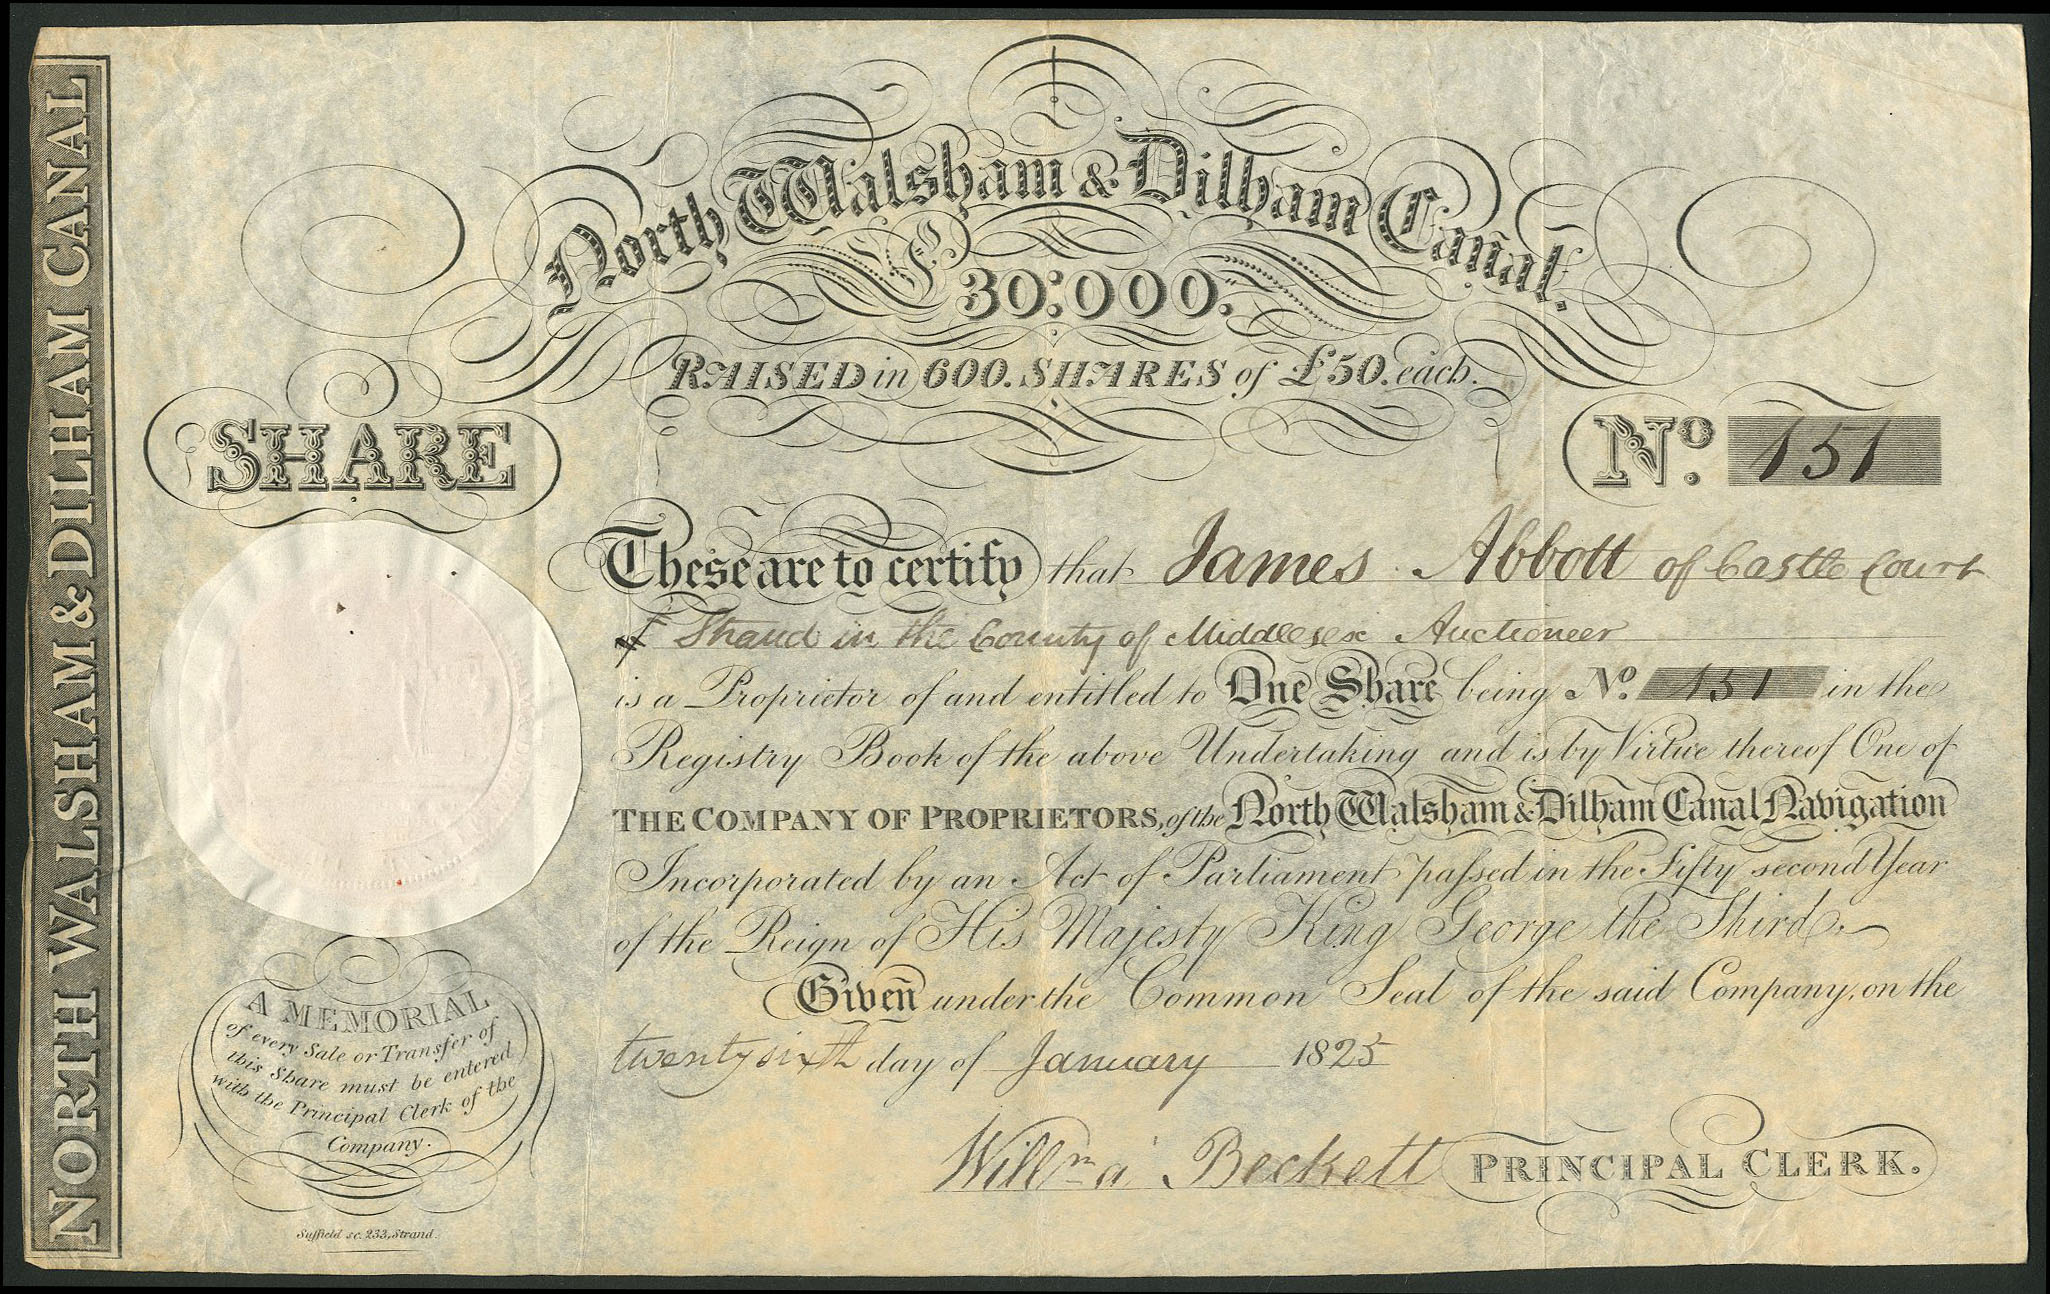 NORTH WALSHAM & DILHAM CANAL
North Walsham & Dilham Canal.
£30:000.
RAISED in 600. SHARES of £50. each.
SHARE
No. 151
These are to certify that James Abbott of Castle Court
Strand in the County of Middlesex Auctioneer
is a Proprietor of and entitled to One Share being No. 151 in the
Registry Book of the above Undertaking and is by Virtue thereof One of
THE COMPANY OF PROPRIETORS, of the North Walsham & Dilham Canal Navigation
Incorporated by an Act of Parliament paſsed in the Fifty second Year
of the Reign of His Majesty King George the Third.
Given under the Common Seal of the said Company, on the
twenty sixth day of January 1825
Willm. Beckett PRINCIPAL CLERK.
A MEMORIAL
of every Sale or Transfer of
this Share must be entered
with the Principal Clerk of the
Company.
Suffield sc. 233, Strand.